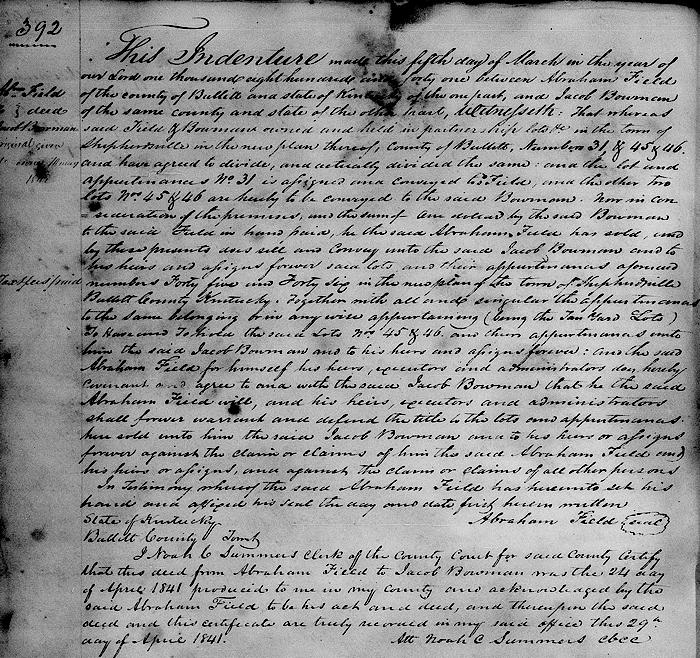 392
This Indenture made this fifth day of March in the year of
our Lord one thousand eight hundred and forty one between Abraham Field
of the county of Bullitt and state of Kentucky of the one part, and Jacob Bowman
of the same county and state of the other part, Witnesseth: That whereas
said Field & Bowman owned and held in partnership lots in the town of
Shepherdsville in the new plan thereof, County of Bullitt, Numbers 31, & 45 & 46
and have agreed to divide, and actually divided the same: and the lot and
appurtenances No 31 is assigned and conveyed to Field, and the other two
lots Nos 45 & 46 are hereby to be conveyed to the said Bowman. Now in con
=sideration of the premises, and the sum of one dollar by the said Bowman
to the said Field in hand paid, he the said Abraham Field has sold, and
by these presents does sell and convey unto the said Jacob Bowman and to
his heirs and assigns forever said lots and their appurtenances aforesaid
numbers Forty five and Forty Six in the new plan of the town of Shepherdsville
Bullitt County Kentucky. Together with all and singular the appurtenances
to the same belonging or in any wise appertaining (being the Tan Yard Lots)
To Have and To Hold the said Lots Nos 45 & 46. and their appurtenances unto
him the said Jacob Bowman and to his heirs and assigns forever: and the said
Abraham Field for himself his heirs, executors and administrators does hereby
covenant and agree to and with the said Jacob Bowman that he the said
Abraham Field will, and his heirs, executors and administrators
shall forever warrant and defend the title to the lots and appurtenances
here sold unto him the said Jacob Bowman and to his heirs or assigns
forever against the claim or claims of him the said Abraham Field and
his heirs or assigns, and against the claim or claims of all other persons
In Testimony whereof the said Abraham Field has hereunto set his
hand and affixed his seal the day and date first herein written
Abraham Field Seal
State of Kentucky
Bullitt County Towit
I Noah C Summers Clerk of the County Court for said County Certify
that this deed from Abraham Field to Jacob Bowman was the 24 day
of April 1841 produced to me in my county and acknowledged by the
said Abraham Field to be his act and deed, and thereupon the said
deed and this certificate are truly recorded in my said office this 29th
day of April 1841.
Att Noah C Summers cbcc
Field
deed
Bowman
Original given
Tax & fees paid